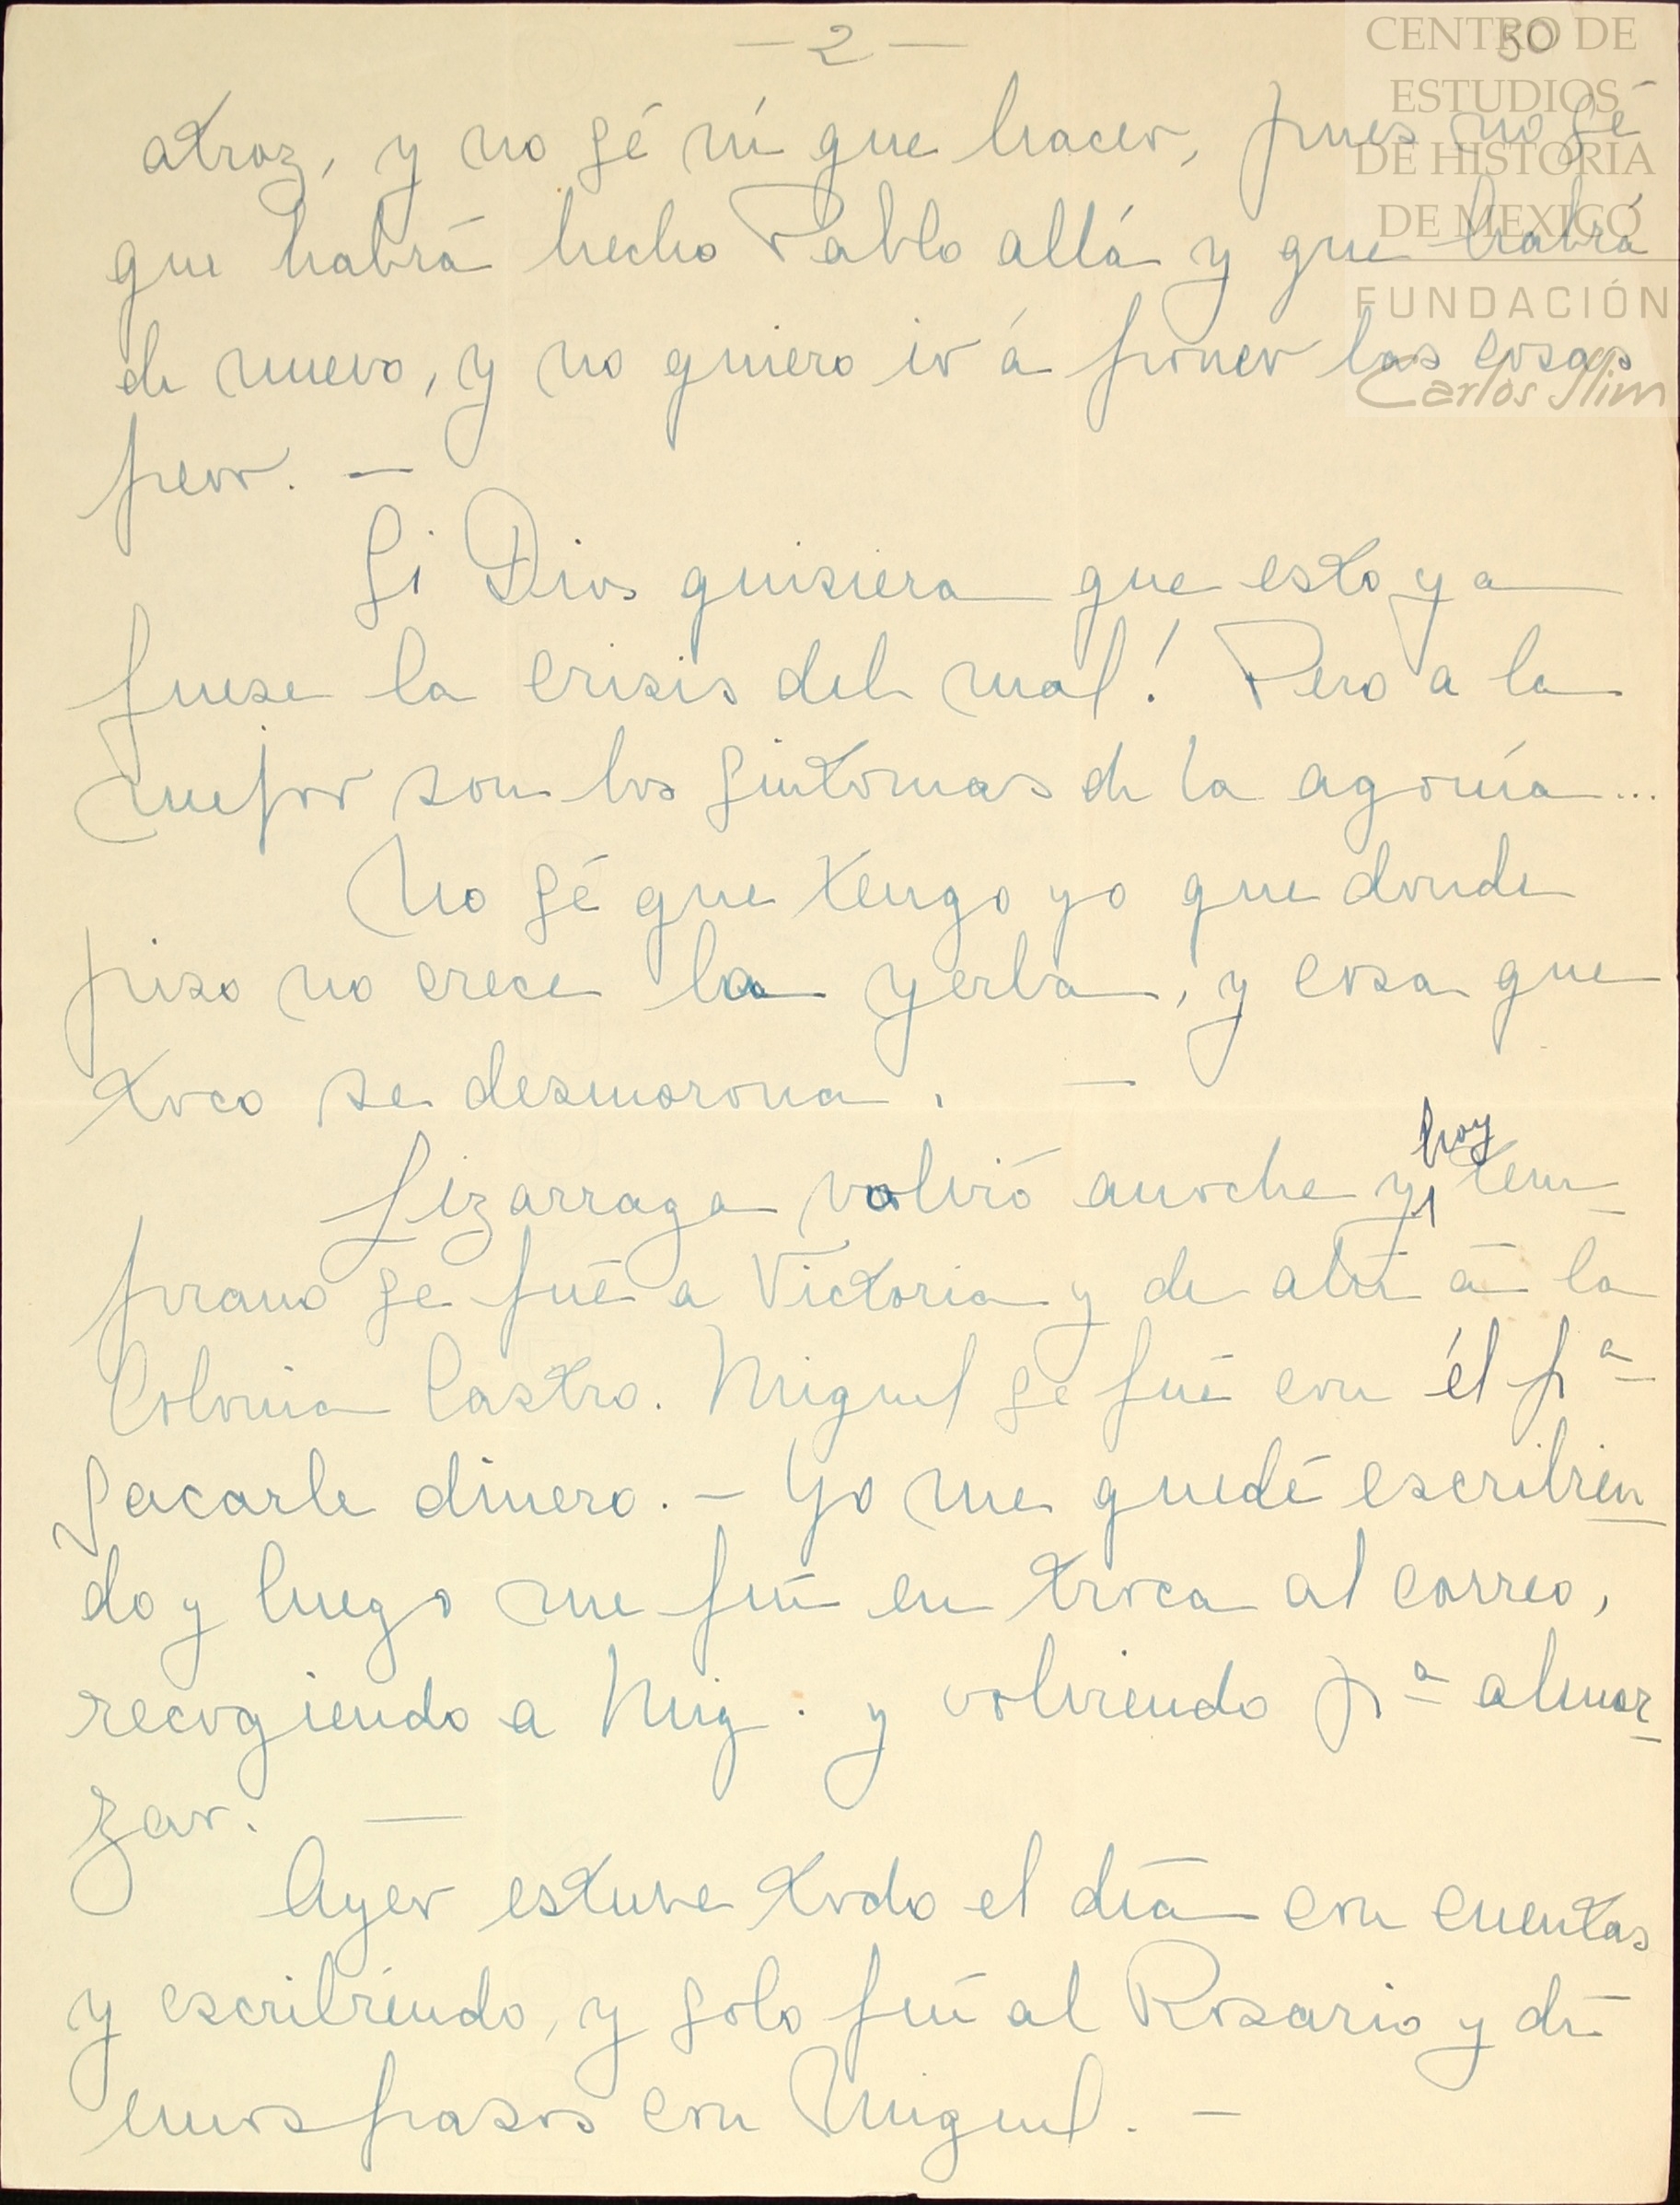 — 2 —
50
CENTRO DE
ESTUDIOS
DE HISTORIA
DE MEXICO
FUNDACIÓN
Carlos Slim
atroz, y no sé ni que hacer, pues no sé
que habrá hecho Pablo allá y que habrá
de nuevo, y no quiero ir á poner las cosas
peor. —
Si Dios quisiera que esto ya
fuese la crisis del mal! Pero a la
mejor son los sintomas de la agonía...
No sé que tengo yo que donde
piso no crece la yerba, y cosa que
toco se desmorona. —
hoy
Lizarraga volvió anoche y tem_
prano se fué a Victoria y de ahí á la
Colonia Castro. Miguel se fué con él pª
sacarle dinero. — Yo me quedé escribien
do y luego me fuí en troca al correo,
recogiendo a Mig. y volviendo pª almor
zar. —
Ayer estuve todo el día con cuentas
y escribiendo, y solo fuí al Rosario y dí
unos pasos con Miguel. —